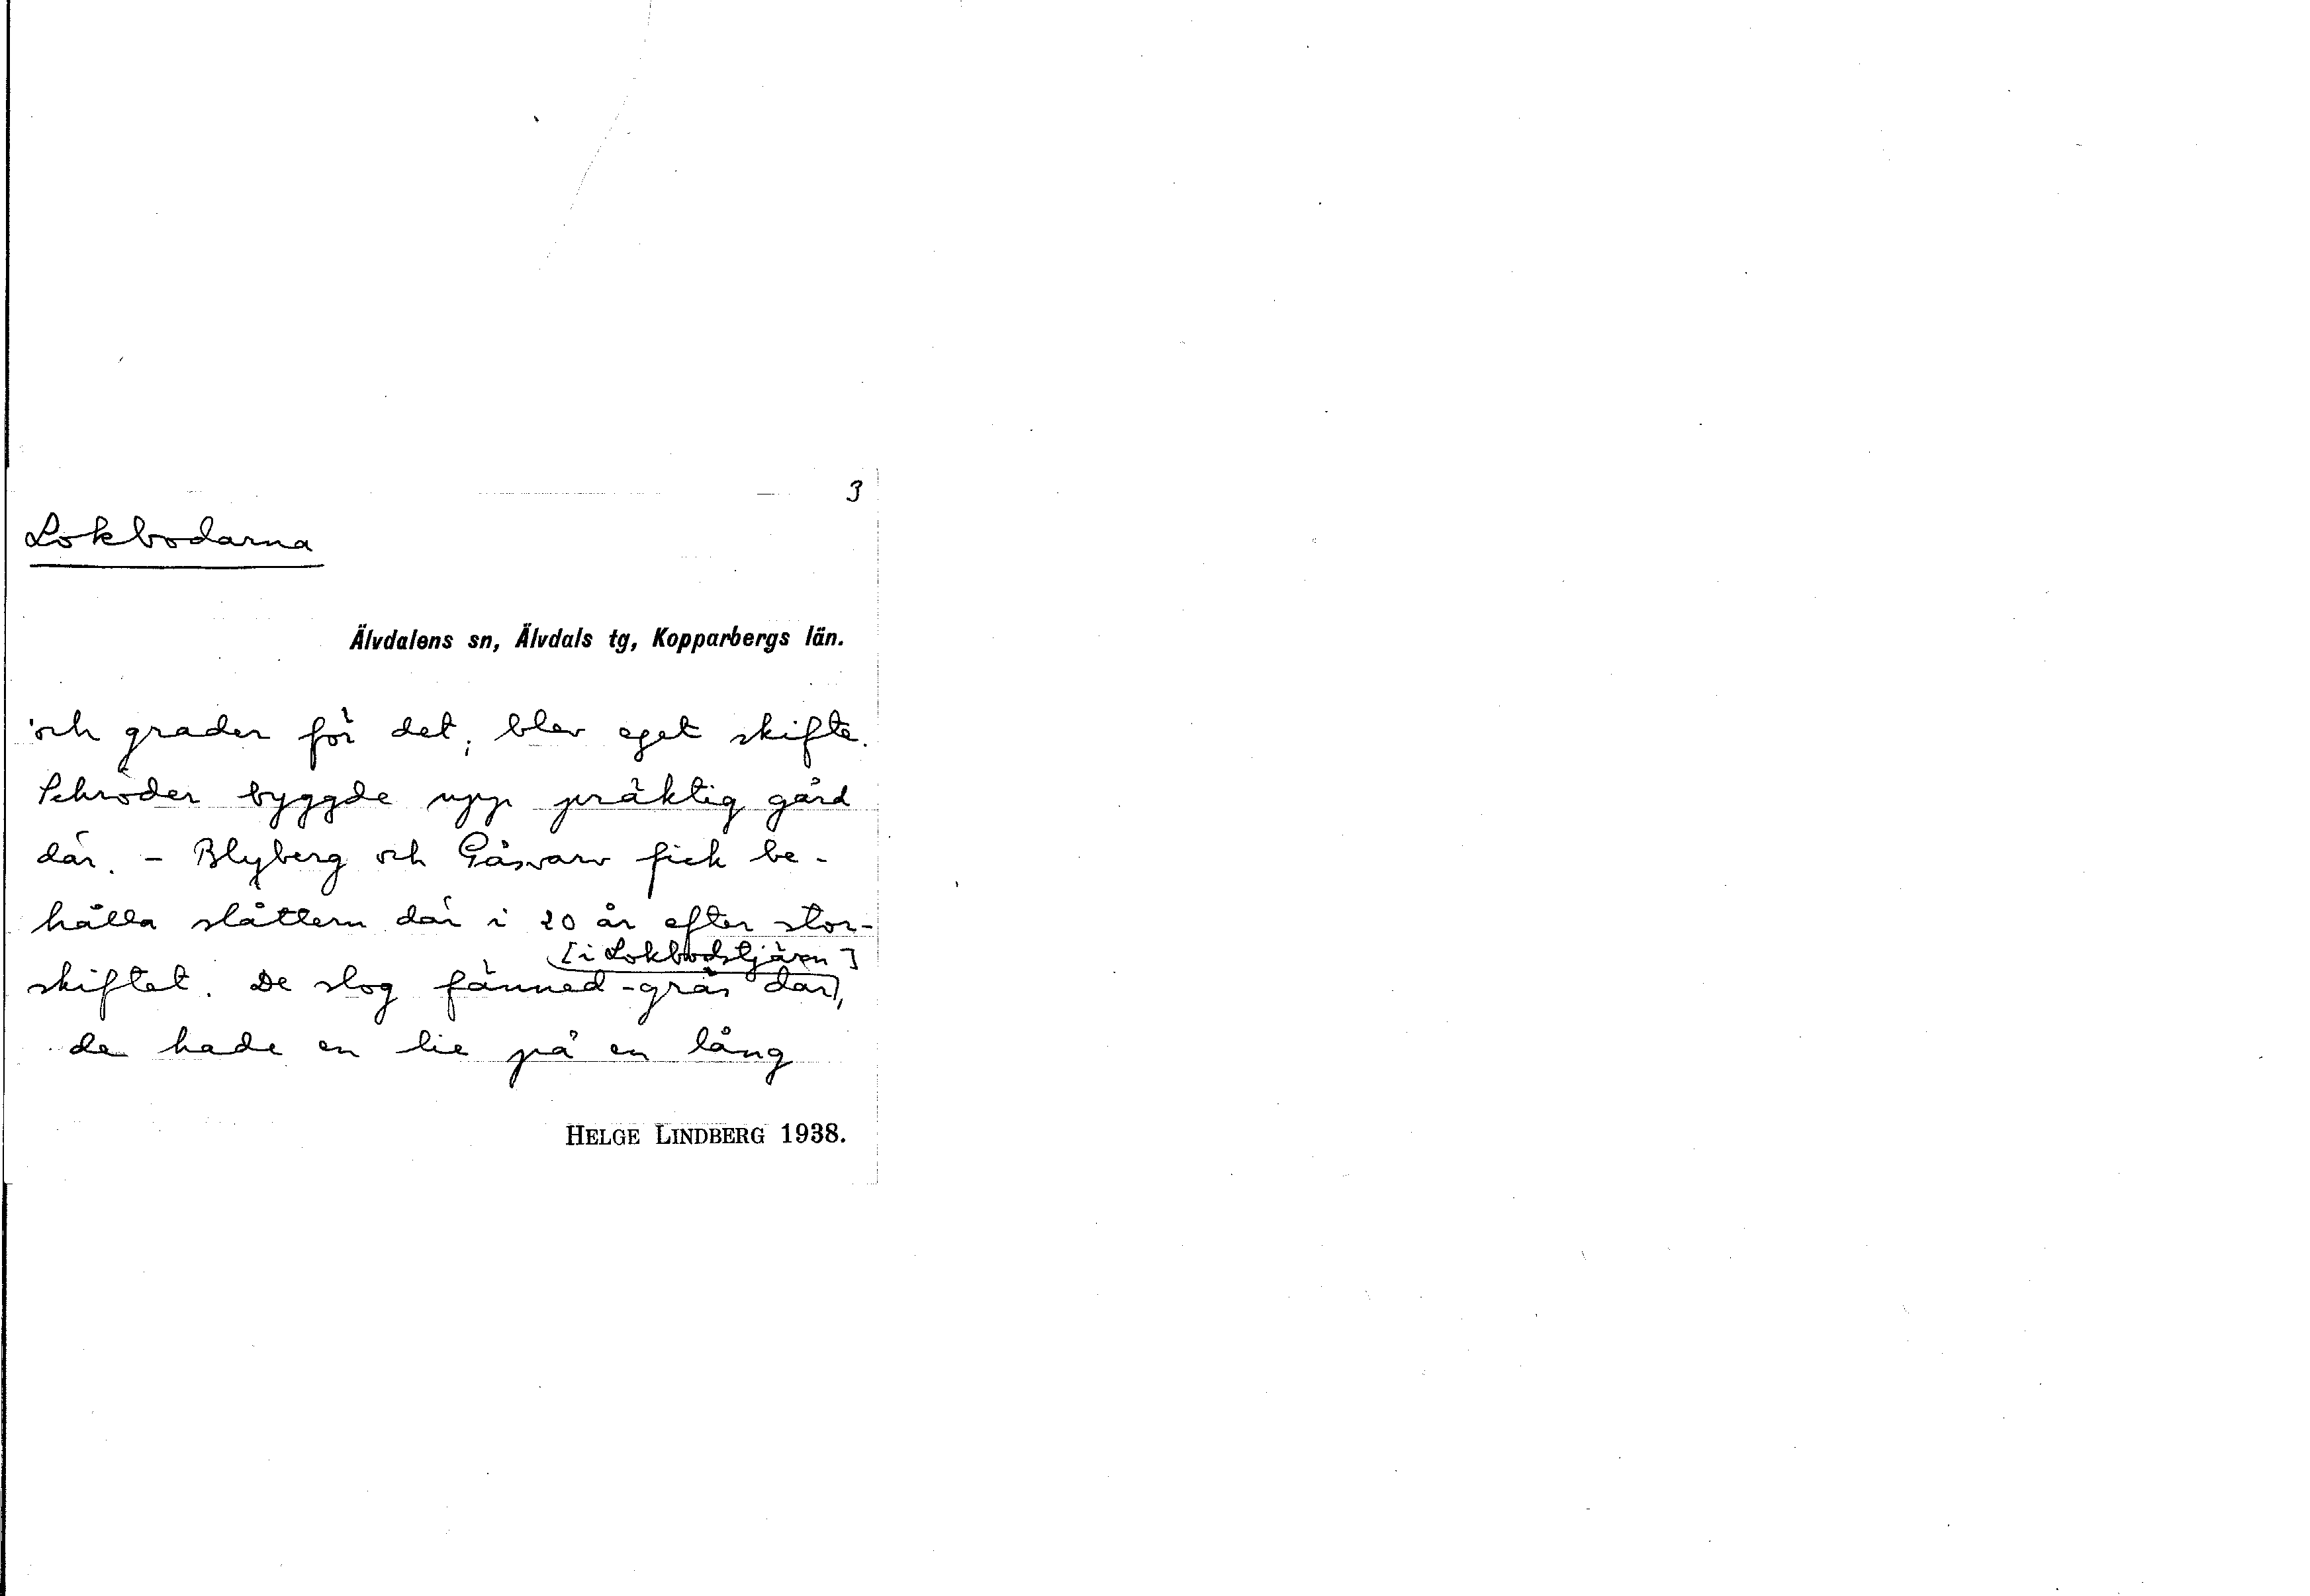 3
Lokbodarna
Älvdalens sn, Älvdals tg, Kopparbergs län.
och grader för det, blev eget skifte.
Schröder byggde upp präktig gård
där. – Blyberg och Gåsvarv fick be-
hålla slåttern där i 20 år efter stor-
[i Lokbodstjärn]
skiftet. De slog fänned-gräs där,
de hade en lie på en lång
HELGE LINDBERG 1938.